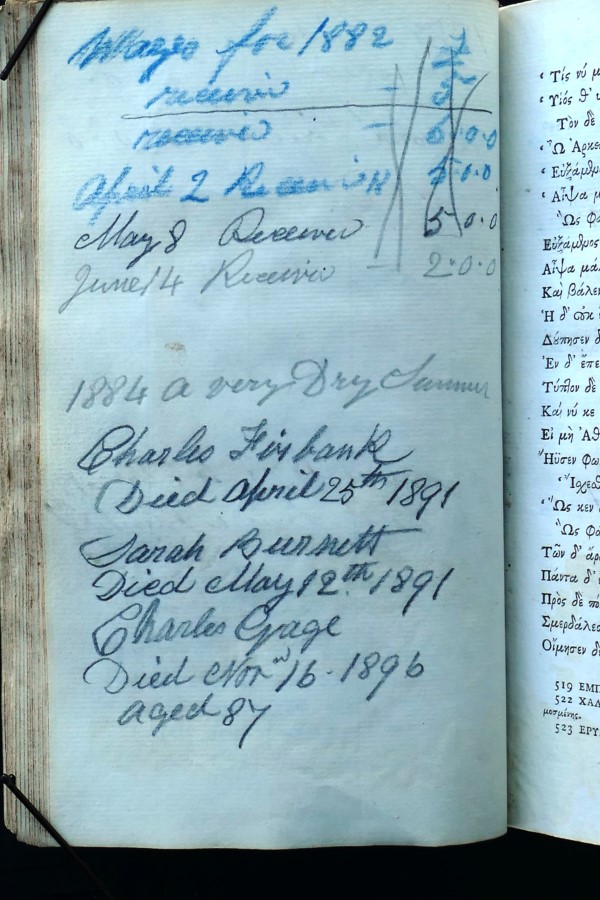 Wages for 1882
receivd - 5
receivd - 6.0.0
April 2 Receivd 5.0.0
May 8 Receivd 5.0.0
June 14 Receivd - 2.0.0
1884 a very Dry Summer
Charles Firbank
Died April 25th 1891
Sarah Burnett
Died May 12th 1891
Charles Gage
Died Nov 16 - 1896
aged 87
‘ Τίς νύ μ
‘ Υἱός θ’
Τὸν δὲ
‘ Ὦ Ἀρκε
‘ Εὐξάμθμ
‘ Αἶψα μ
Ὣς φά
Εὐξάμθμος
Αἶψα μάλ
Καὶ βάλεν
Ἡ δ’ οὐκ
Δούπησεν δ
Ἐν δ’ ἔπε
Τύπτον δὲ
Καί νύ κε
Εἰ μὴ Ἀθ
Ἤϋσεν φω
Ἴσχεσθ
‘ Ὥς κεν
Ὣς φά
Τῶν δ’ ἄρ
Πάντα δ’
Πρὸς δὲ πό
Σμερδαλέο
Οἴμησεν δ
519 ΕΜΠ
522 ΧΑΛ
μοσμένης.
523 ΕΡΥ